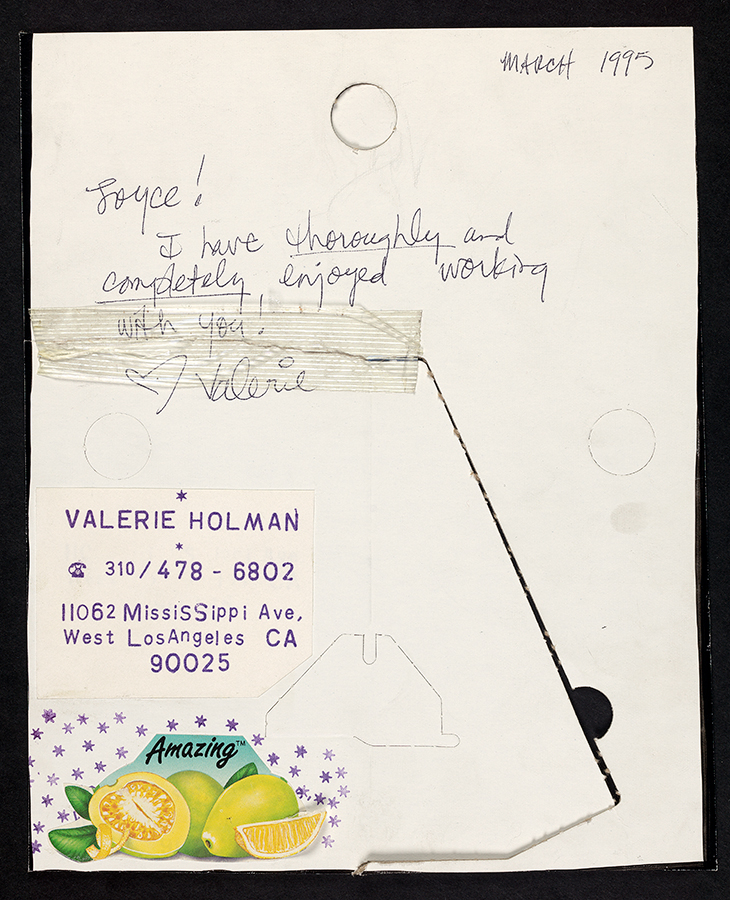 MARCH 1995
Joyce!
I have thoroughly and
completely enjoyed working
with you!
♡ Valerie
*
VALERIE HOLMAN
*
☎ 310/478-6802
11062 MissisSippi Ave,
West LosAngeles CA
90025
Amazing™